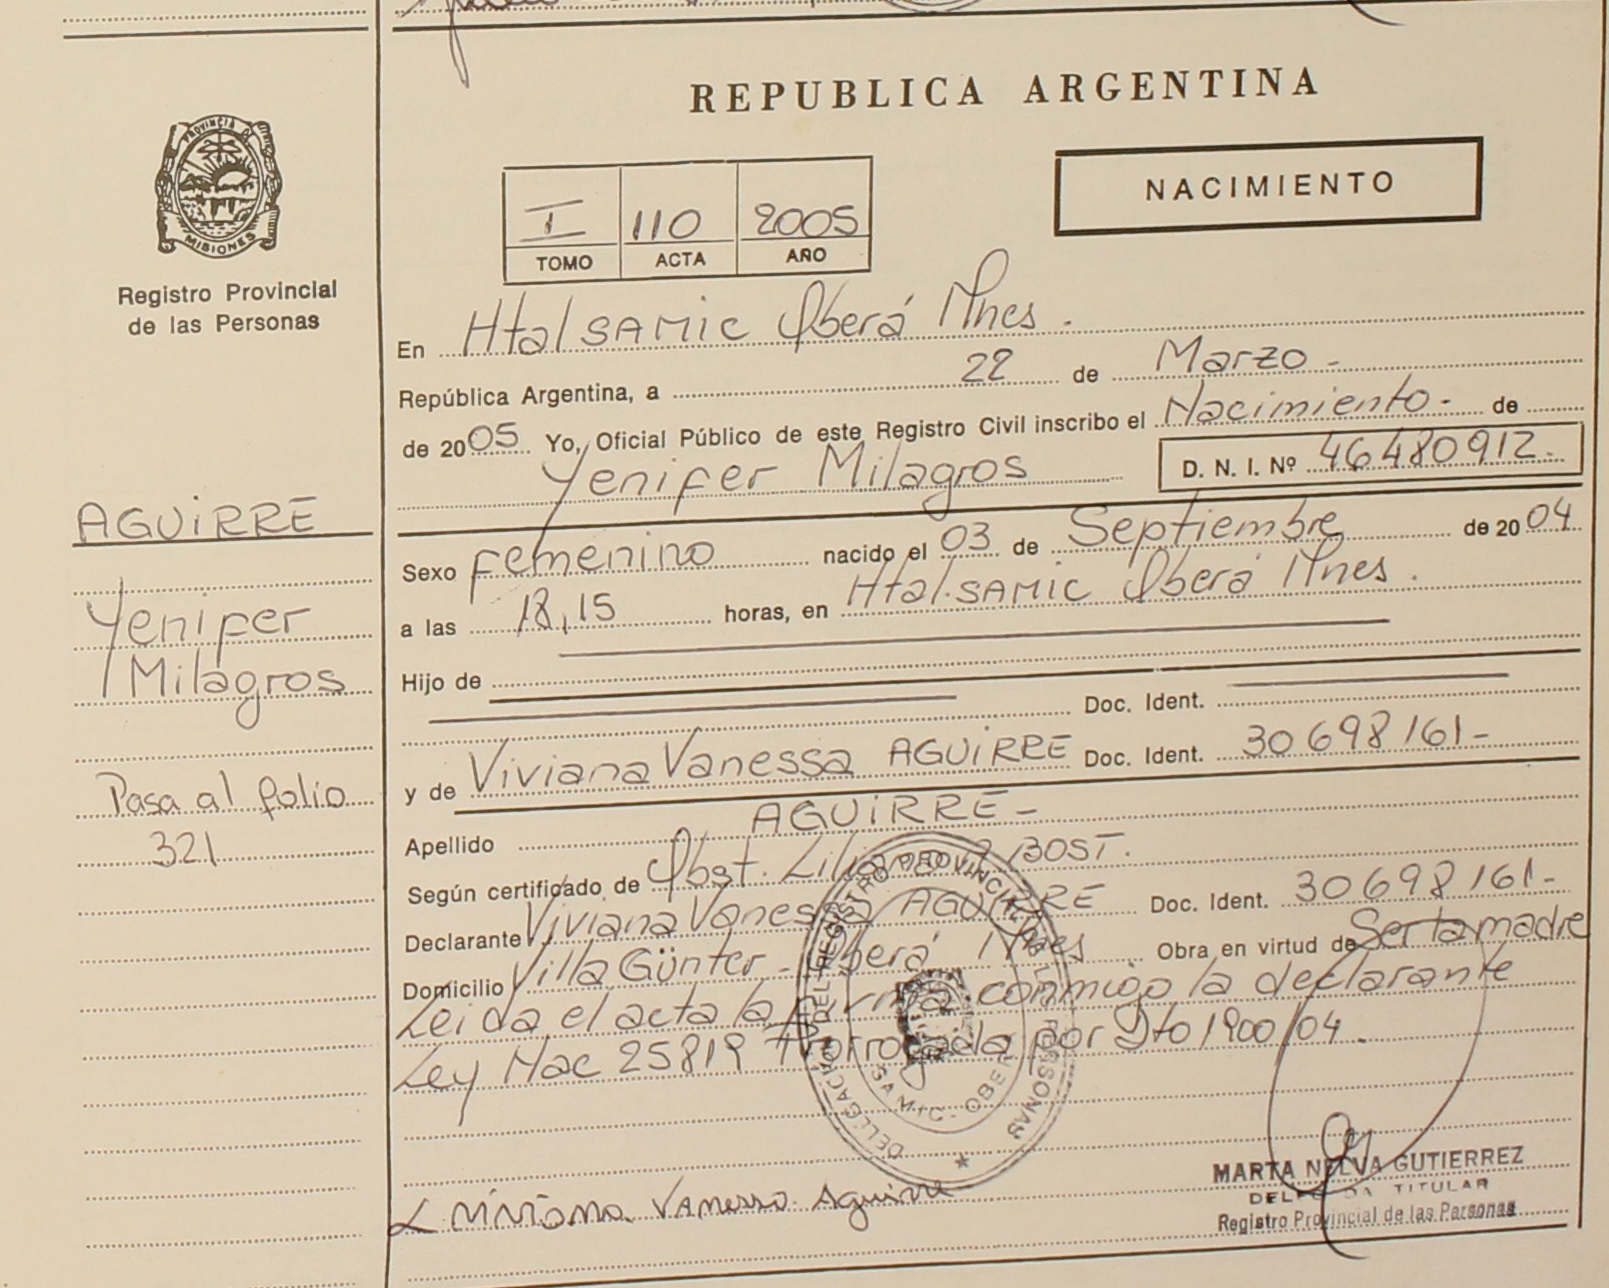 REPUBLICA ARGENTINA
PROVINCIA DE
MISIONES
Registro Provincial
de las Personas
NACIMIENTO
I 110 2005
TOMO ACTA AÑO
En Htal SAMIC Oberá Mnes.
República Argentina, a 22 de Marzo -
de 2005 Yo, Oficial Público de este Registro Civil inscribo el Nacimiento - de
Yenifer Milagros D. N. I. Nº 46480912-
AGUIRRE
Yenifer
Milagros
Pasa al folio
321
Sexo Femenino nacido el 03 de Septiembre de 2004
a las 18,15 horas, en Htal. SAMIC Oberá Mnes.
Hijo de
Doc. Ident.
y de Viviana Vanessa AGUIRRE Doc. Ident. 30698161-
Apellido AGUIRRE-
Según certificado de Obst. BOST.
Declarante Viviana Vanessa AGUIRRE Doc. Ident. 30698161-
Domicilio Villa Günter - Oberá Mnes Obra en virtud de Ser la madre
Leida el acta la firma conmigo la declarante
Ley Nac 25819 Prorrogada por Dto 1900/04.
DELEGACION DEL REGISTRO PROVINCIAL DE LAS PERSONAS
SAMIC - OBERA
Viviana Vanessa Aguirre
MARTA NELVA GUTIERREZ
DELEGADA TITULAR
Registro Provincial de las Personas